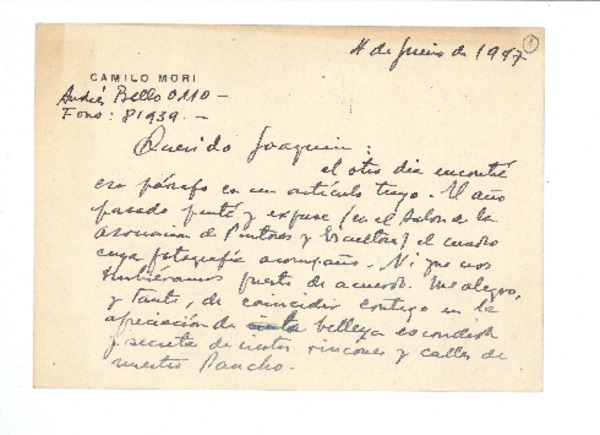 4 de Junio de 1947
1
CAMILO MORI
Andrés Bello 0110 -
Fono: 81939. -
Querido Joaquin:
el otro dia encontré
ese párrafo en un artículo tuyo. El año
pasado pinté y expuse (en el Salon de la
Asociacion de Pintores y Escultores) el cuadro
cuya fotografía acompaño. Ni que nos
hubiéramos puesto de acuerdo. Me alegro,
y tanto, de coincidir contigo en la
apreciación de esta belleza escondida
y secreta de ciertos rincones y calles de
nuestro Pancho.